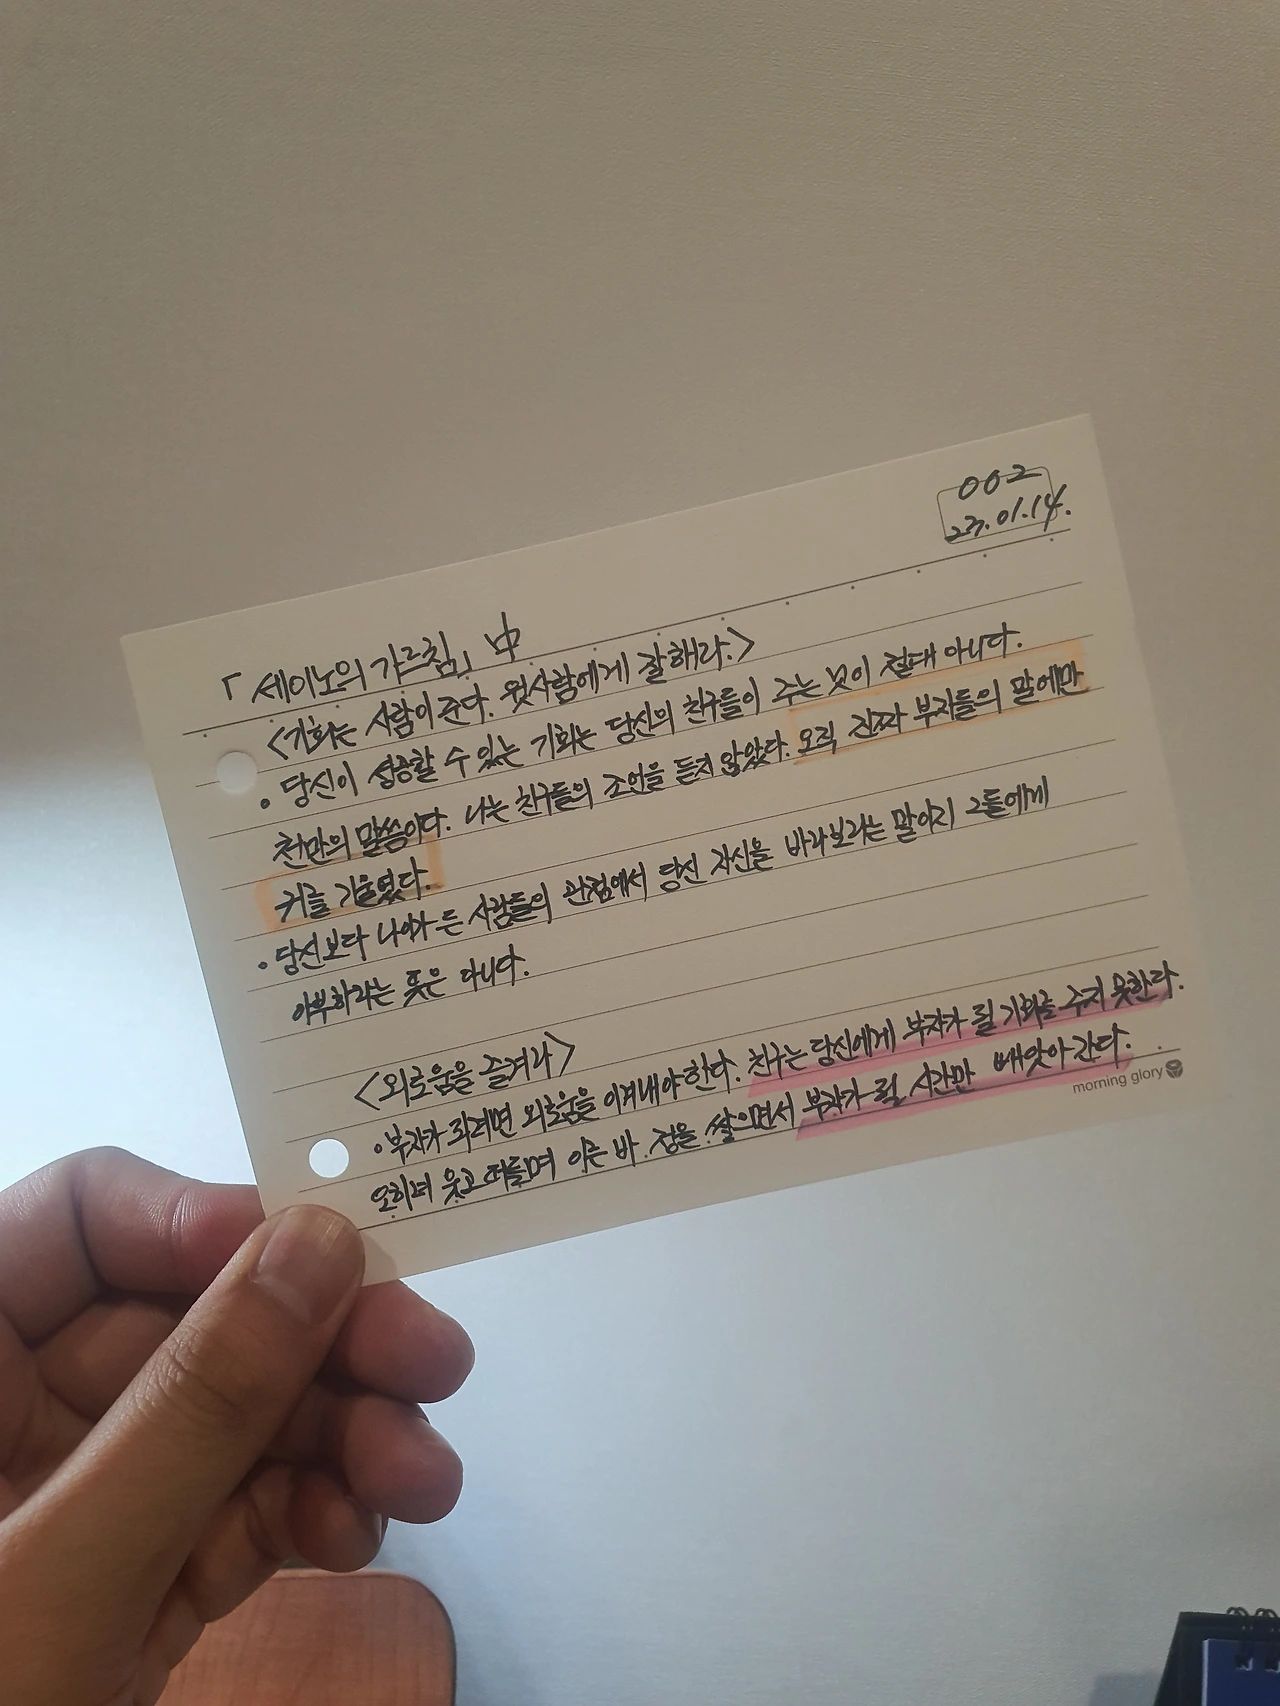 002
23.01.14.
「세이노의 가르침」 中
<기회는 사람이 준다. 윗사람에게 잘해라.>
• 당신이 성공할 수 있는 기회는 당신의 친구들이 주는 것이 절대 아니다.
천만의 말씀이다. 나는 친구들의 조언을 듣지 않았다. 오직 진짜 부자들의 말에만
귀를 기울였다.
• 당신보다 나이가 든 사람들의 관점에서 당신 자신을 바라보라는 말이지 그들에게
아부하라는 뜻은 아니다.
<외로움을 즐겨라>
• 부자가 되려면 외로움을 이겨내야 한다. 친구는 당신에게 부자가 될 기회를 주지 못한다.
오히려 웃고 떠들며 이른 바 정을 쌓으면서 부자가 될 시간만 빼앗아 간다.
morning glory